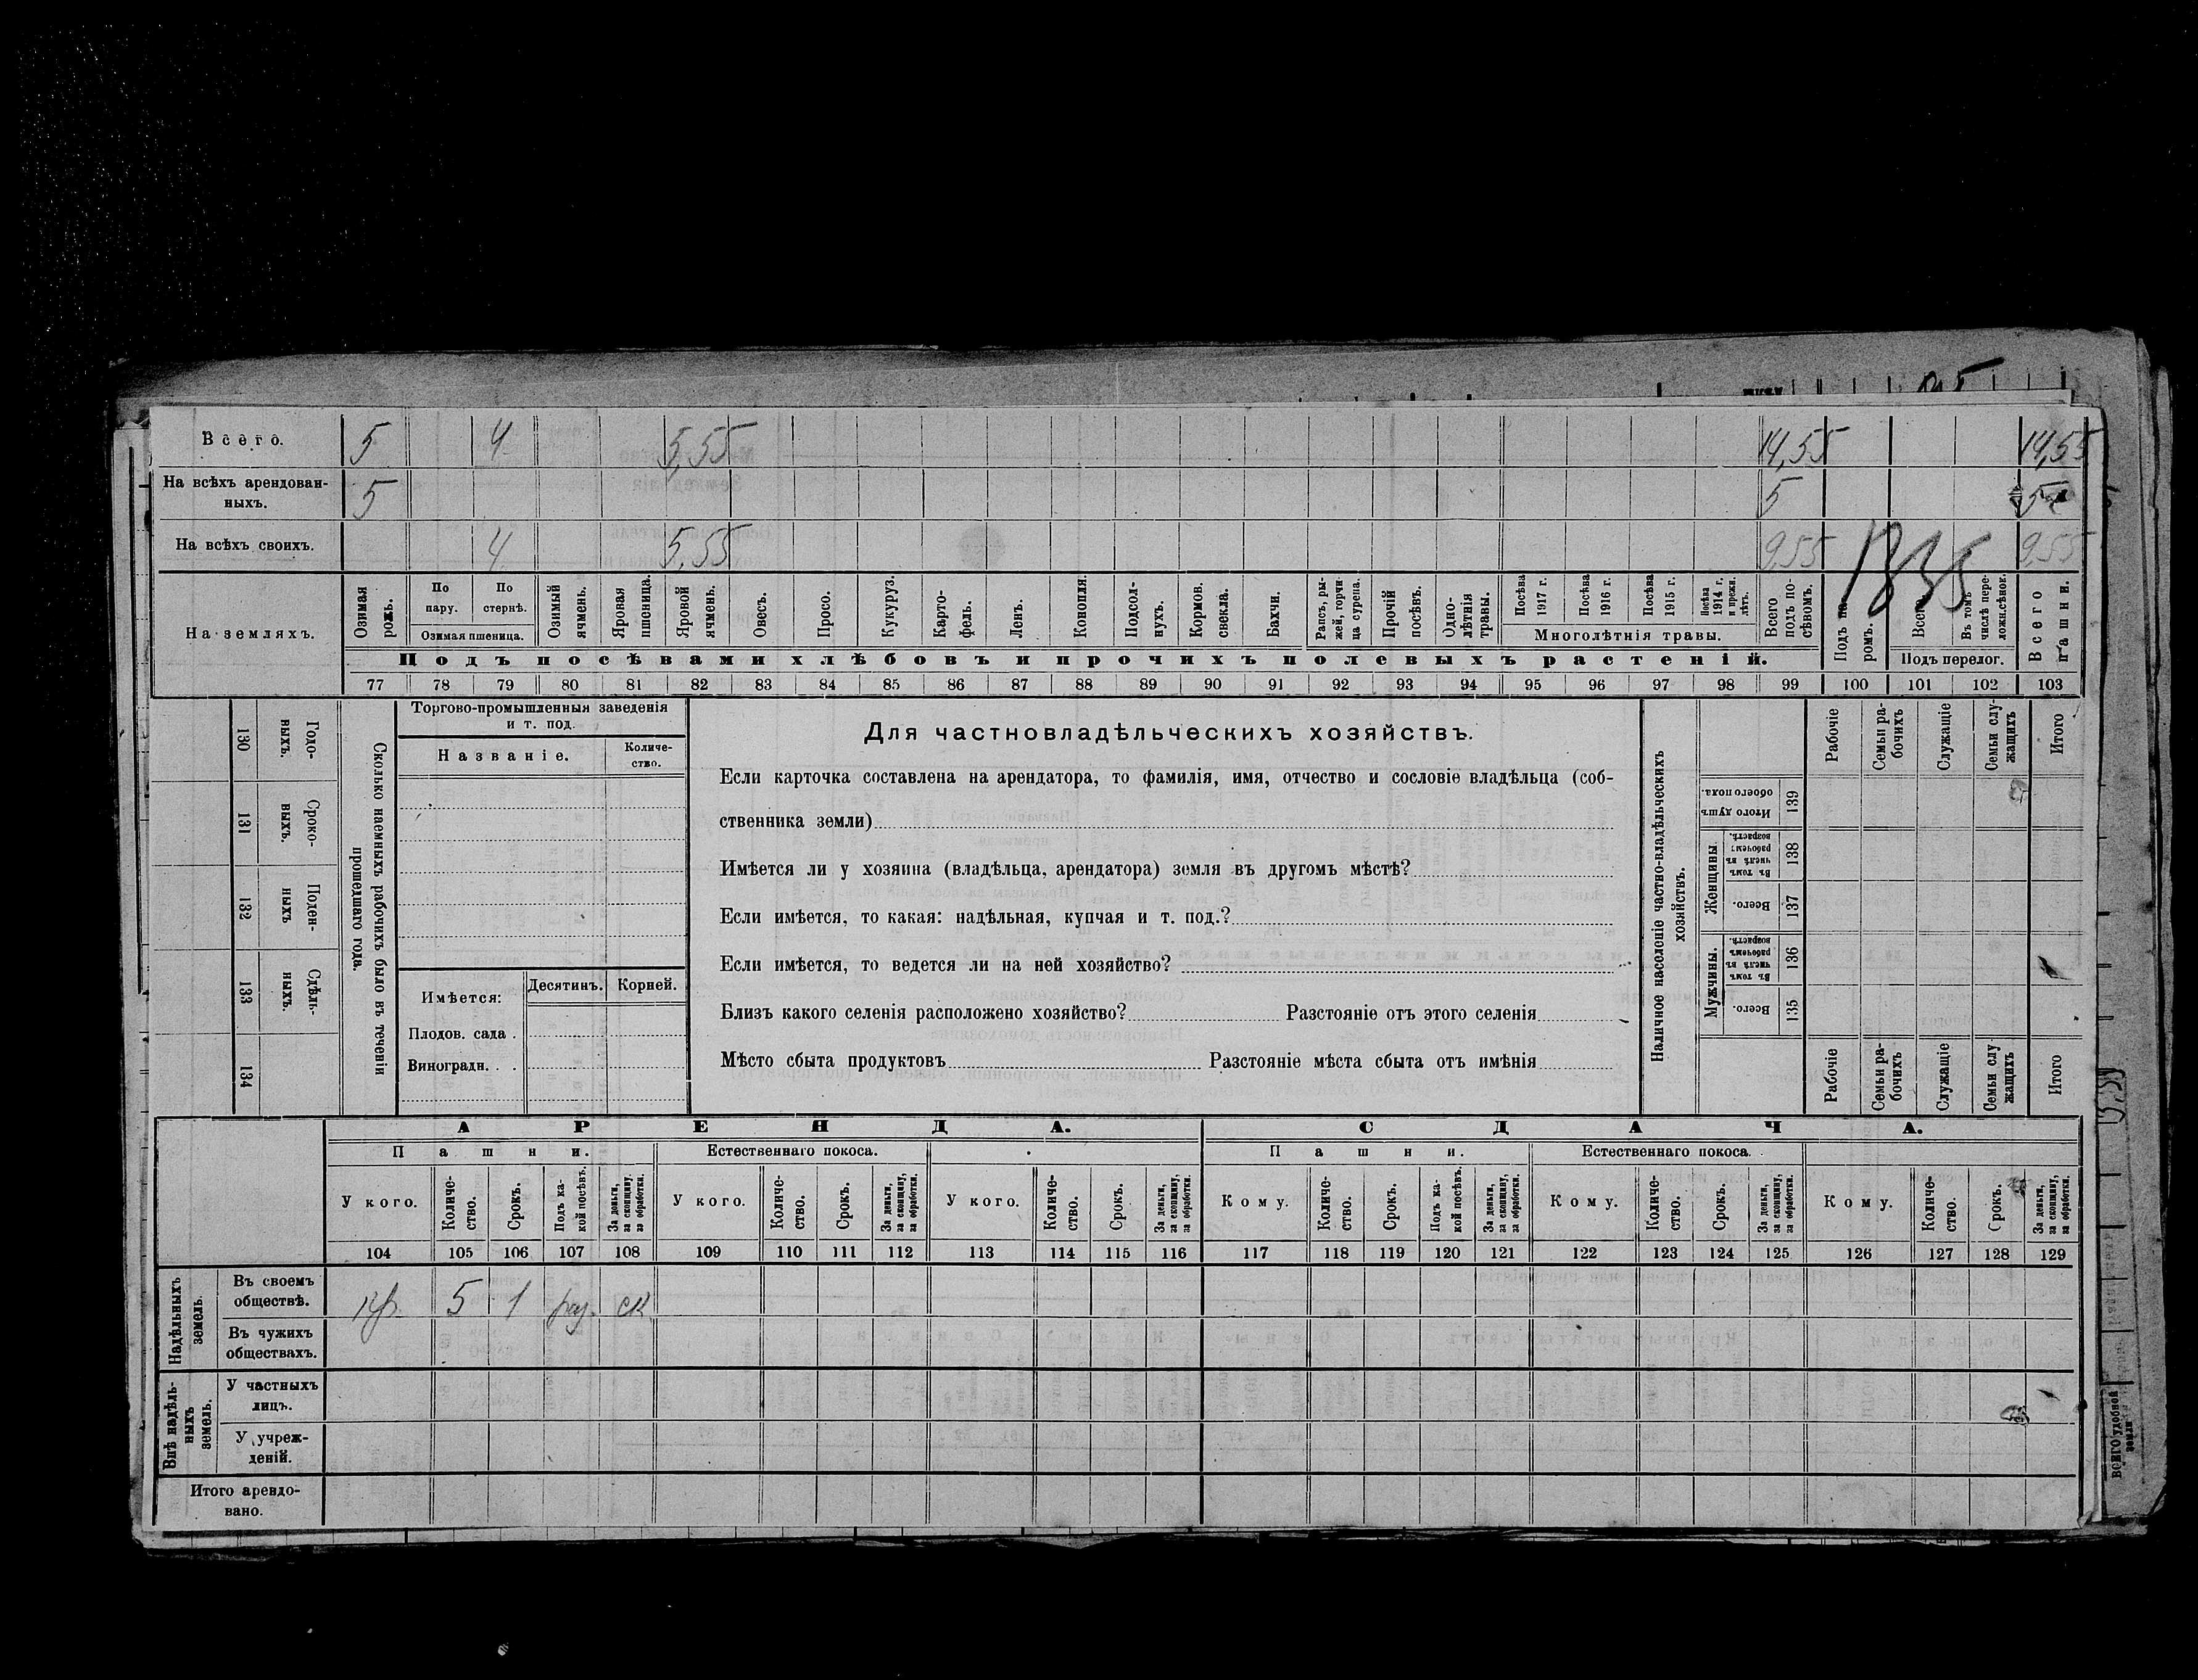 Всего. 5 4 5,55 14,55 14,55
На всѣхъ арендован-
ныхъ. 5 5 5
На всѣхъ своихъ. 4 5,55 9,55 9,55
1835
На земляхъ.
Озимая рожь.
По пару.
По стернѣ.
Озимая пшеница.
Озимый ячмень.
Яровая пшеница.
Яровой ячмень.
Овесъ.
Просо.
Кукуруз.
Карто-
фель.
Ленъ.
Конопля.
Подсол-
нухъ.
Кормов.
свекла.
Бахчи.
Рапсъ, ры-
жей, горчи-
ца сурепа.
Прочій
посѣвъ.
Одно-
лѣтнія
травы.
Посѣва
1917 г.
Посѣва
1916 г.
Посѣва
1915 г.
Посѣва
1914 г.
и прежн.
лѣтъ.
Многолѣтнія травы.
Всего
подъ по-
сѣвомъ.
Подъ па-
ромъ.
Всего
Въ томъ
числѣ пере-
ложн.сѣнок.
Подъ перелог.
Всего
пашни.
Подъ посѣвами хлѣбовъ и прочихъ полевыхъ растеній.
77 78 79 80 81 82 83 84 85 86 87 88 89 90 91 92 93 94 95 96 97 98 99 100 101 102 103
130 Годо-
ныхъ.
131 Сроко-
ныхъ.
132 Поден-
ныхъ
133 Сдѣль-
ныхъ.
134
Сколько наемныхъ рабочихъ было въ теченіи
прошедшаго года.
Торгово-промышленныя заведенія
и т. под.
Названіе.
Количе-
ство.
Имѣется:
Десятинъ. Корней.
Плодов. сада .
Виноградн. . .
Для частновладѣльческихъ хозяйствъ.
Если карточка составлена на арендатора, то фамилія, имя, отчество и сословіе владѣльца (соб-
ственника земли)
Имѣется ли у хозяина (владѣльца, арендатора) земля въ другомъ мѣстѣ?
Если имѣется, то какая: надѣльная, купчая и т. под.?
Если имѣется, то ведется ли на ней хозяйство?
Близъ какого селенія расположено хозяйство? Разстояніе отъ этого селенія
Мѣсто сбыта продуктовъ Разстояніе мѣста сбыта отъ имѣнія
Наличное населеніе частно-владѣльческихъ
хозяйствъ.
Рабочіе
Семьи ра-
бочихъ
Служащіе
Семьи слу-
жащихъ
Итого
Итого душъ
обоего пола.
139
Женщины
Въ томъ
числѣ въ
рабочемъ
возрастѣ.
138
Всего.
137
Мужчины.
Въ томъ
числѣ въ
рабочемъ
возрастѣ.
136
Всего.
135
Рабочіе
Семьи ра-
бочихъ
Служащіе
Семьи слу
жащихъ
Итого
АРЕНДА. СДАЧА.
Пашни. Естественнаго покоса. Пашни. Естественнаго покоса.
У кого.
Количе-
ство.
Срокъ.
Подъ ка-
кой посѣвъ.
За деньги,
за скопщину,
за обработки.
У кого.
Количе-
ство.
Срокъ.
За деньги,
за скопщину,
за обработки.
У кого.
Количе-
ство.
Срокъ.
За деньги,
за скопщину,
за обработки.
Кому.
Количе-
ство.
Срокъ.
Подъ ка-
кой посѣвъ.
За деньги,
за скопщину,
за обработки.
Кому.
Количе-
ство.
Срокъ.
За деньги,
за скопщину,
за обработки.
Кому.
Количе-
ство.
Срокъ.
За деньги,
за скопщину,
за обработки.
104 105 106 107 108 109 110 111 112 113 114 115 116 117 118 119 120 121 122 123 124 125 126 127 128 129
Надѣльныхъ
земель.
Въ своемъ
обществѣ.
кр. 5 1 раз. ск
Въ чужихъ
обществахъ.
Внѣ надѣль-
ныхъ
земель.
У частныхъ
лицъ.
У учреж-
деній.
Итого арендо-
вано.
ВСЕГО удобной
земли